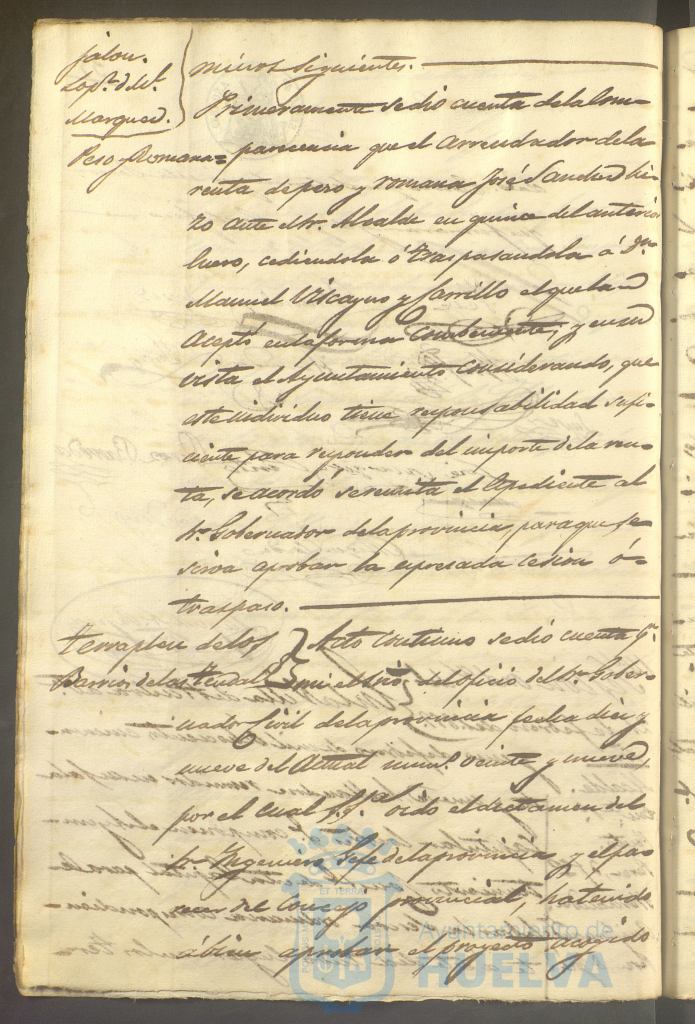 Jalon.
Lopz. d Ml.
Marquez.
Peso y Romana=
minos siguientes.
Primeramente se dió cuenta de la com-
parecencia que el arrendador de la
renta de peso y romana José Sanchez hi-
zo ante el Sr. Alcalde en quince del anterior
Enero, cediendola ó traspasandola á Dn.
Manuel Vizcayno y Jarrillo el que la
aceptó en la forma combeniente, y en su
vista el Ayuntamiento considerando, que
este individuo tiene responsabilidad sufi-
ciente para responder del importe de la ren-
ta, se acordó se remita el Expediente al
Sr. Gobernador de la provincia para que se
sirva aprobar la espresada cesion ó
traspaso.
Terraplen de los
Barrios de las Tendal.s
Acto continuo se dió cuenta pr.
mi el Srio. del oficio del Sr. Gober-
nador Civil de la provincia fecha diez y
nueve del actual num.º veinte y nueve
por el cual oido el dictamen del
Sr. Ingeniero Jefe de la provincia y el pa-
recer del Consejo provincial, ha tenido
á bien aprobar el proyecto acogido
Ayuntamiento de
HUELVA